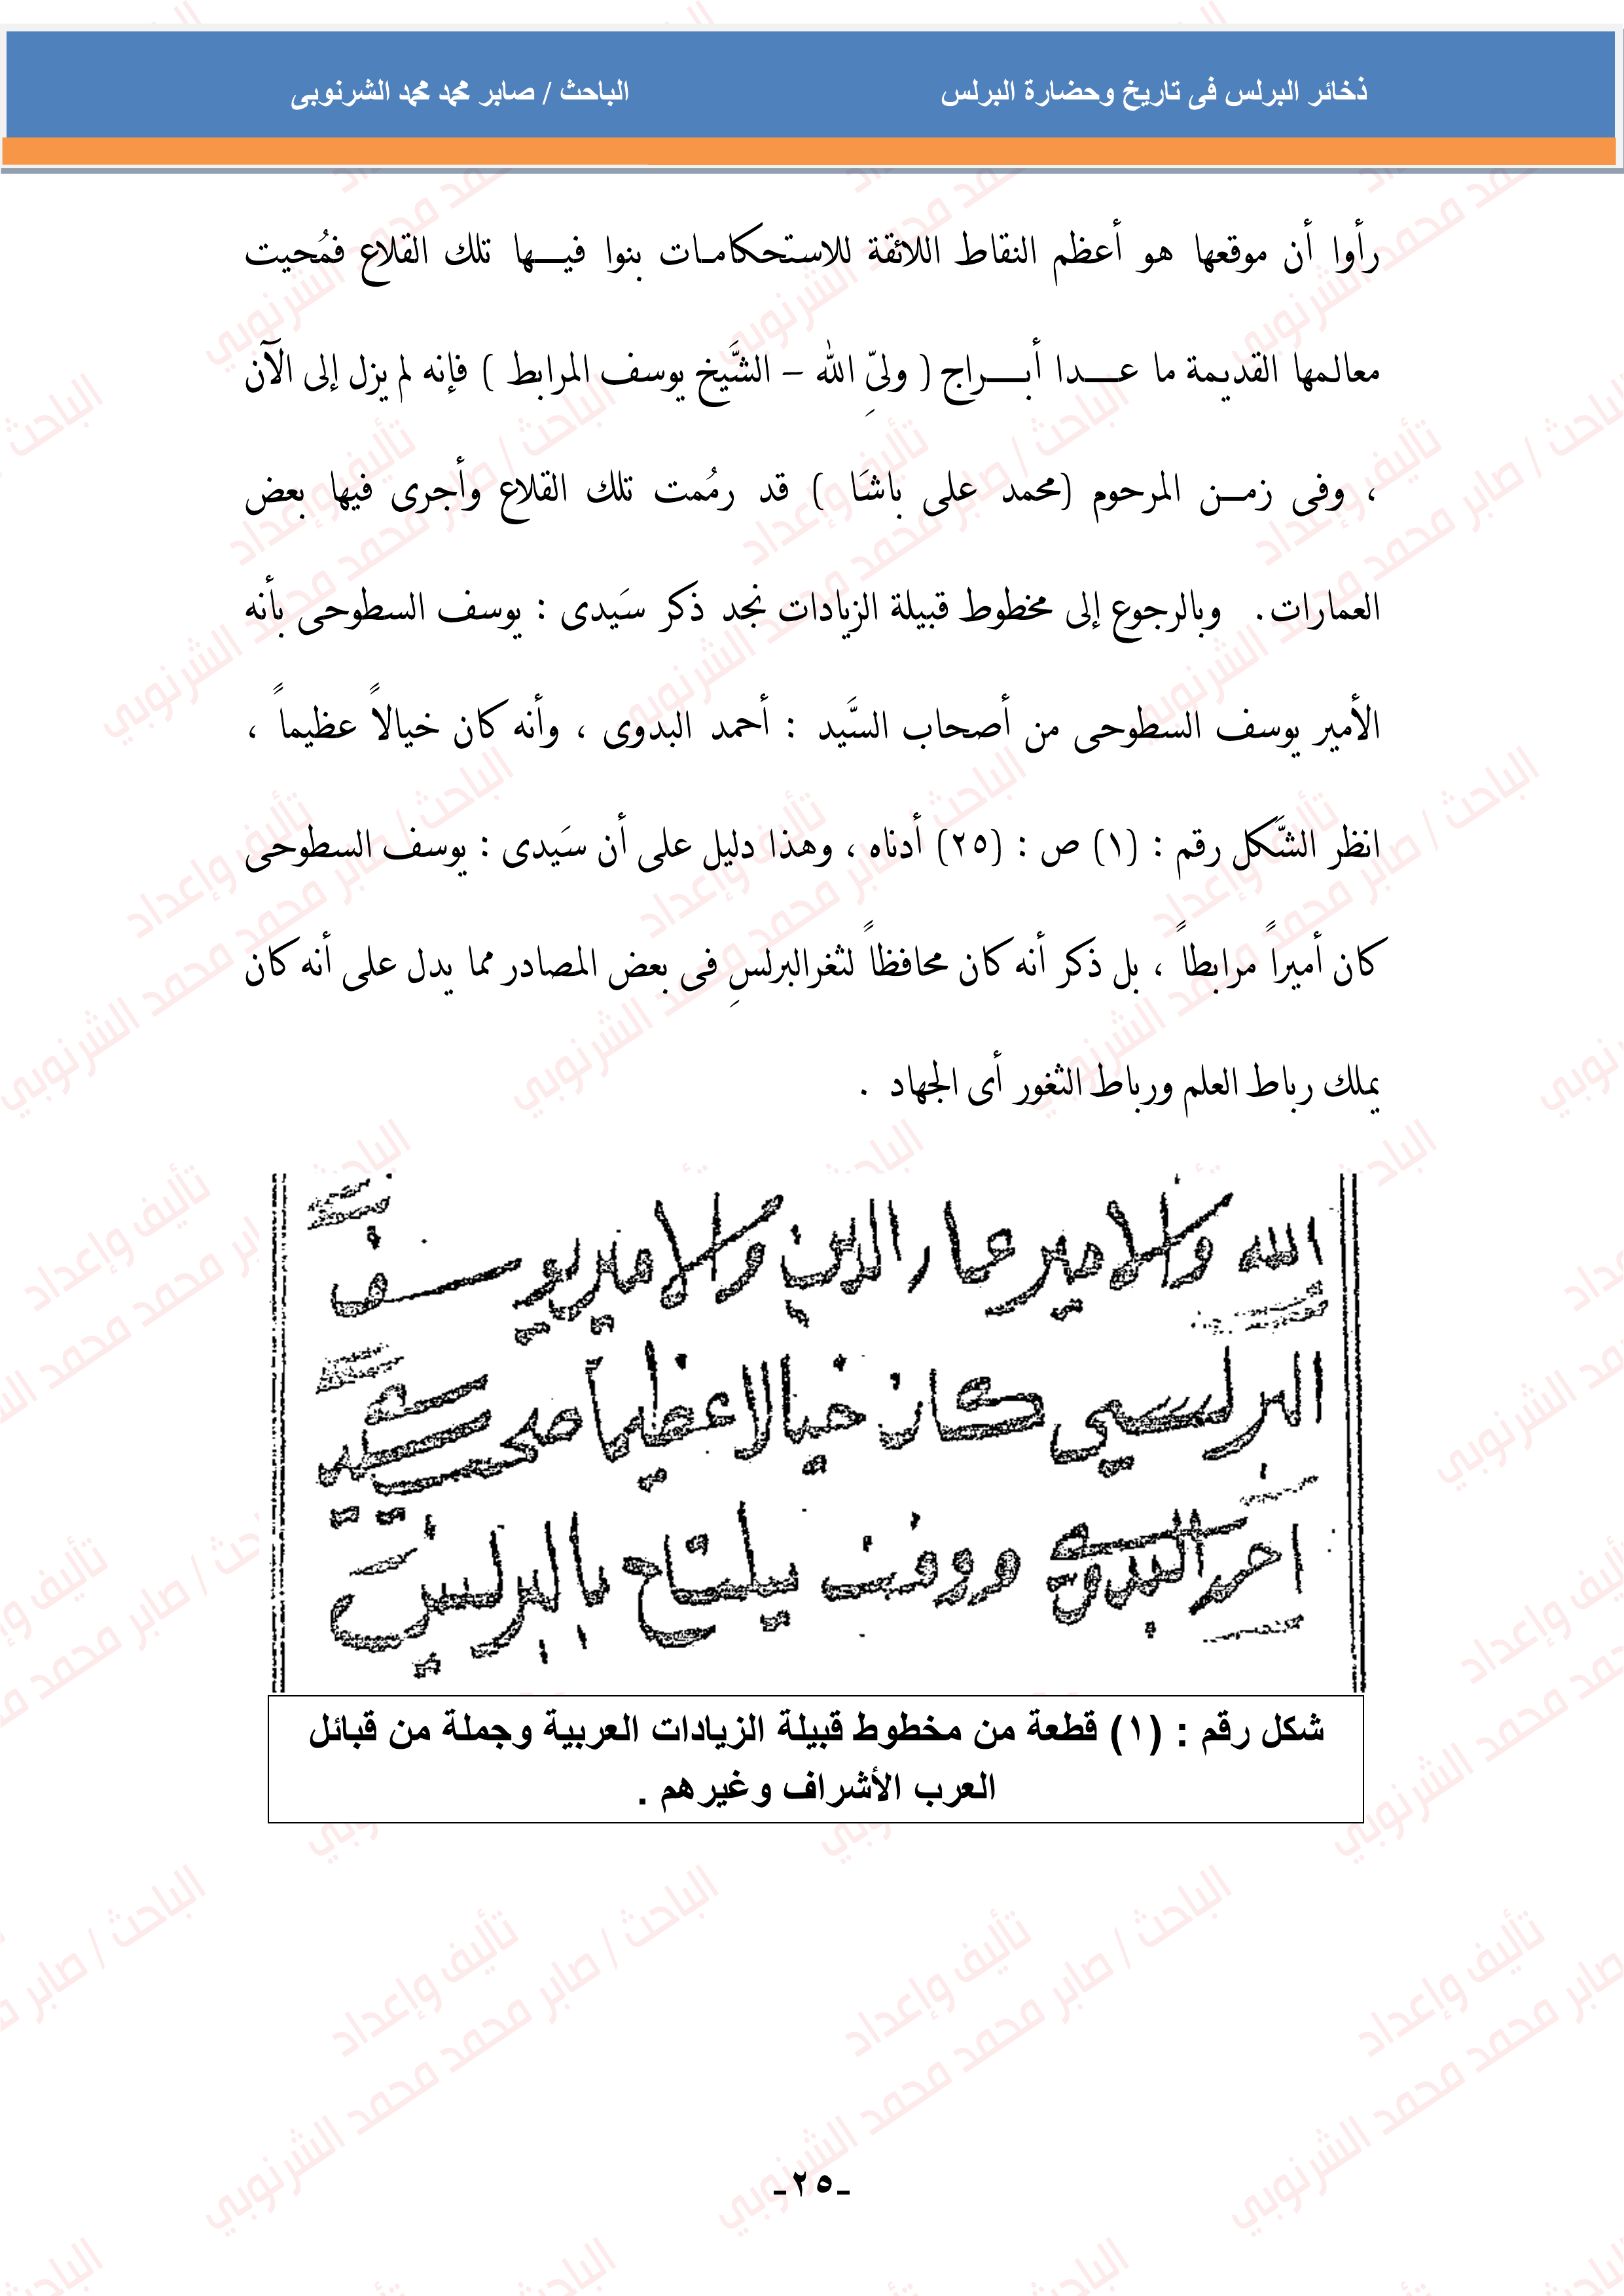 ذخائر البرلس فى تاريخ وحضارة البرلس
الباحث / صابر محمد محمد الشرنوبى
رأوا أن موقعها هو أعظم النقاط اللائقة للاستحكامات بنوا فيها تلك القلاع فمُحيت
معالمها القديمة ما عدا أبراج ( ولىِّ الله – الشَّيخ يوسف المرابط ) فإنه لم يزل إلى الآن
، وفى زمن المرحوم (محمد على باشَا ) قد رمُمت تلك القلاع وأجرى فيها بعض
العمارات . وبالرجوع إلى مخطوط قبيلة الزيادات نجد ذكر سَيدى : يوسف السطوحى بأنه
الأمير يوسف السطوحى من أصحاب السَّيد : أحمد البدوى ، وأنه كان خيالاً عظيماً ،
انظر الشَّكل رقم : (١) ص : (٢٥) أدناه ، وهذا دليل على أن سَيدى : يوسف السطوحى
كان أميراً مرابطاً ، بل ذكر أنه كان محافظاً لثغرالبرلسِ فى بعض المصادر مما يدل على أنه كان
يملك رباط العلم ورباط الثغور أى الجهاد .
الله والامير عمار الدين والامير يوسف
البرلسي كان خيالا عظيما صحب سيد
احمد البدوي ووقف بلتاح بالبرلس
شكل رقم : (١) قطعة من مخطوط قبيلة الزيادات العربية وجملة من قبائل
العرب الأشراف وغيرهم .
-٢٥-
تأليف وإعداد
الباحث / صابر محمد محمد الشرنوبي